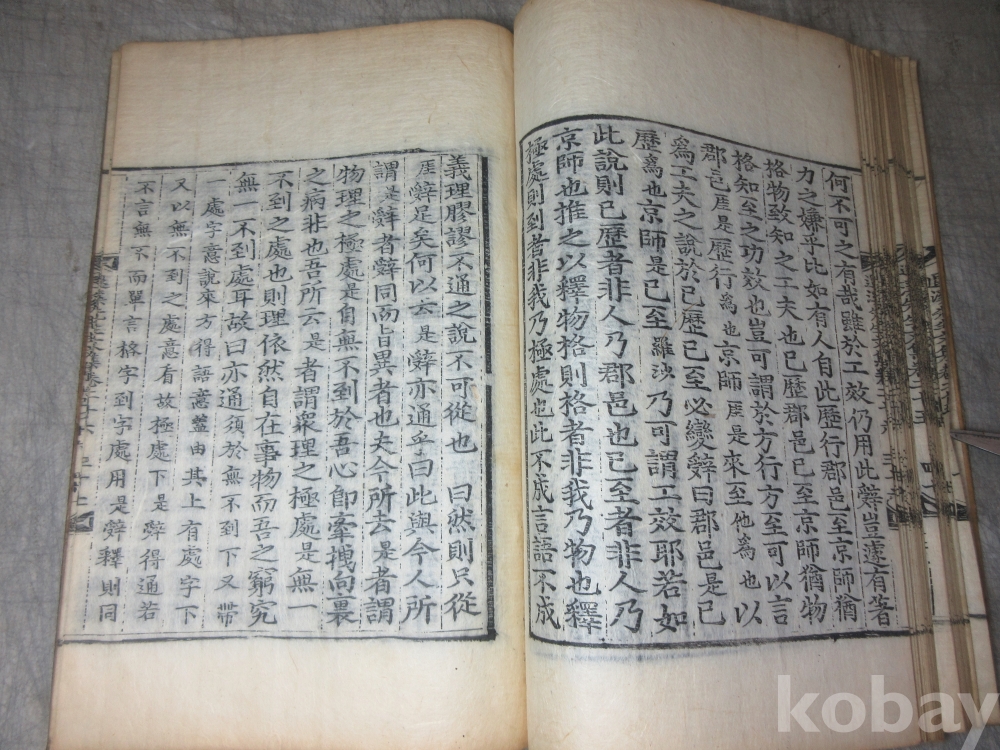 何不可之有哉雖於工效仍用此辭豈遽有著
力之嫌乎比如有人自此歷行郡邑至京師猶
格物致知之工夫也已歷郡邑已至京師猶物
格知至之功效也豈可謂於方行方至可以言
郡邑厓是歷行爲也京師厓是來至他爲也以
爲工夫之說於已歷已至必變辭曰郡邑是已
歷爲也京師是已至羅沙乃可謂工效耶若如
此說則已歷者非人乃郡邑也已至者非人乃
京師也推之以釋物格則格者非我乃物也釋
極處則到者非我乃極處也此不成言語不成
義理膠謬不通之說不可從也 曰然則只從
厓辭足矣何以云是辭亦通乎曰此與今人所
謂是辭者辭同而旨異者也夫今所云是者謂
物理之極處是自無不到於吾心卽牽拽向裏
之病非也吾所云是者謂衆理之極處是無一
不到之處也則理依然自在事物而吾之窮究
無一不到處耳故曰亦通須於無不到下又帶
一處字意說來方得語意蓋由其上有處字下
又以無不到之處意看故極處下是辭得通若
不言無不而單言格字到字處用是辭釋則同
kobay